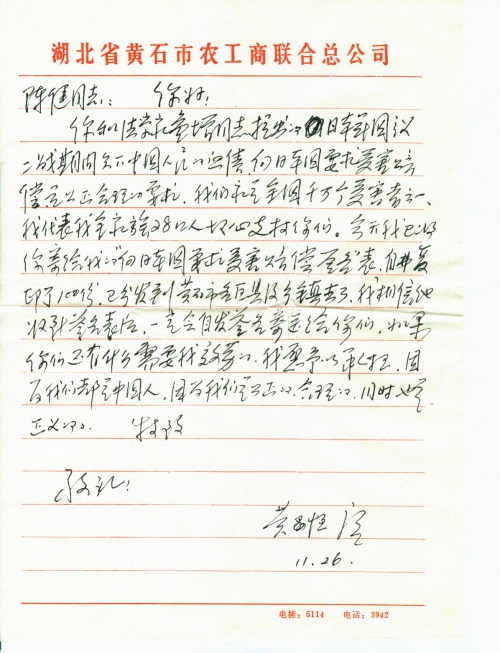 湖北省黄石市农工商联合总公司
陈健同志: 你好!
你和法学家童增同志提出的向日本国议
二战期间欠下中国人民的血债,向日本国要求受害赔
偿是公正合理的要求,我们家是全国千万个受害者之一,
我代表我全家族28口人切心支持你们。今天我已将
你寄给我的向日本国要求受害赔偿签名表,自费复
印了100份,已分发到黄石市各区县及乡镇去了,我相信他
收到签名表后,一定会自发签名寄送给你们,如果
你们还有什么需要我效劳的,我愿予以承担,因
为我们都是中国人,因为我们是公正的,合理的,同时也是
正义的。 特致
敬礼!
黄
11.26.
电挂:5114 电话:3942